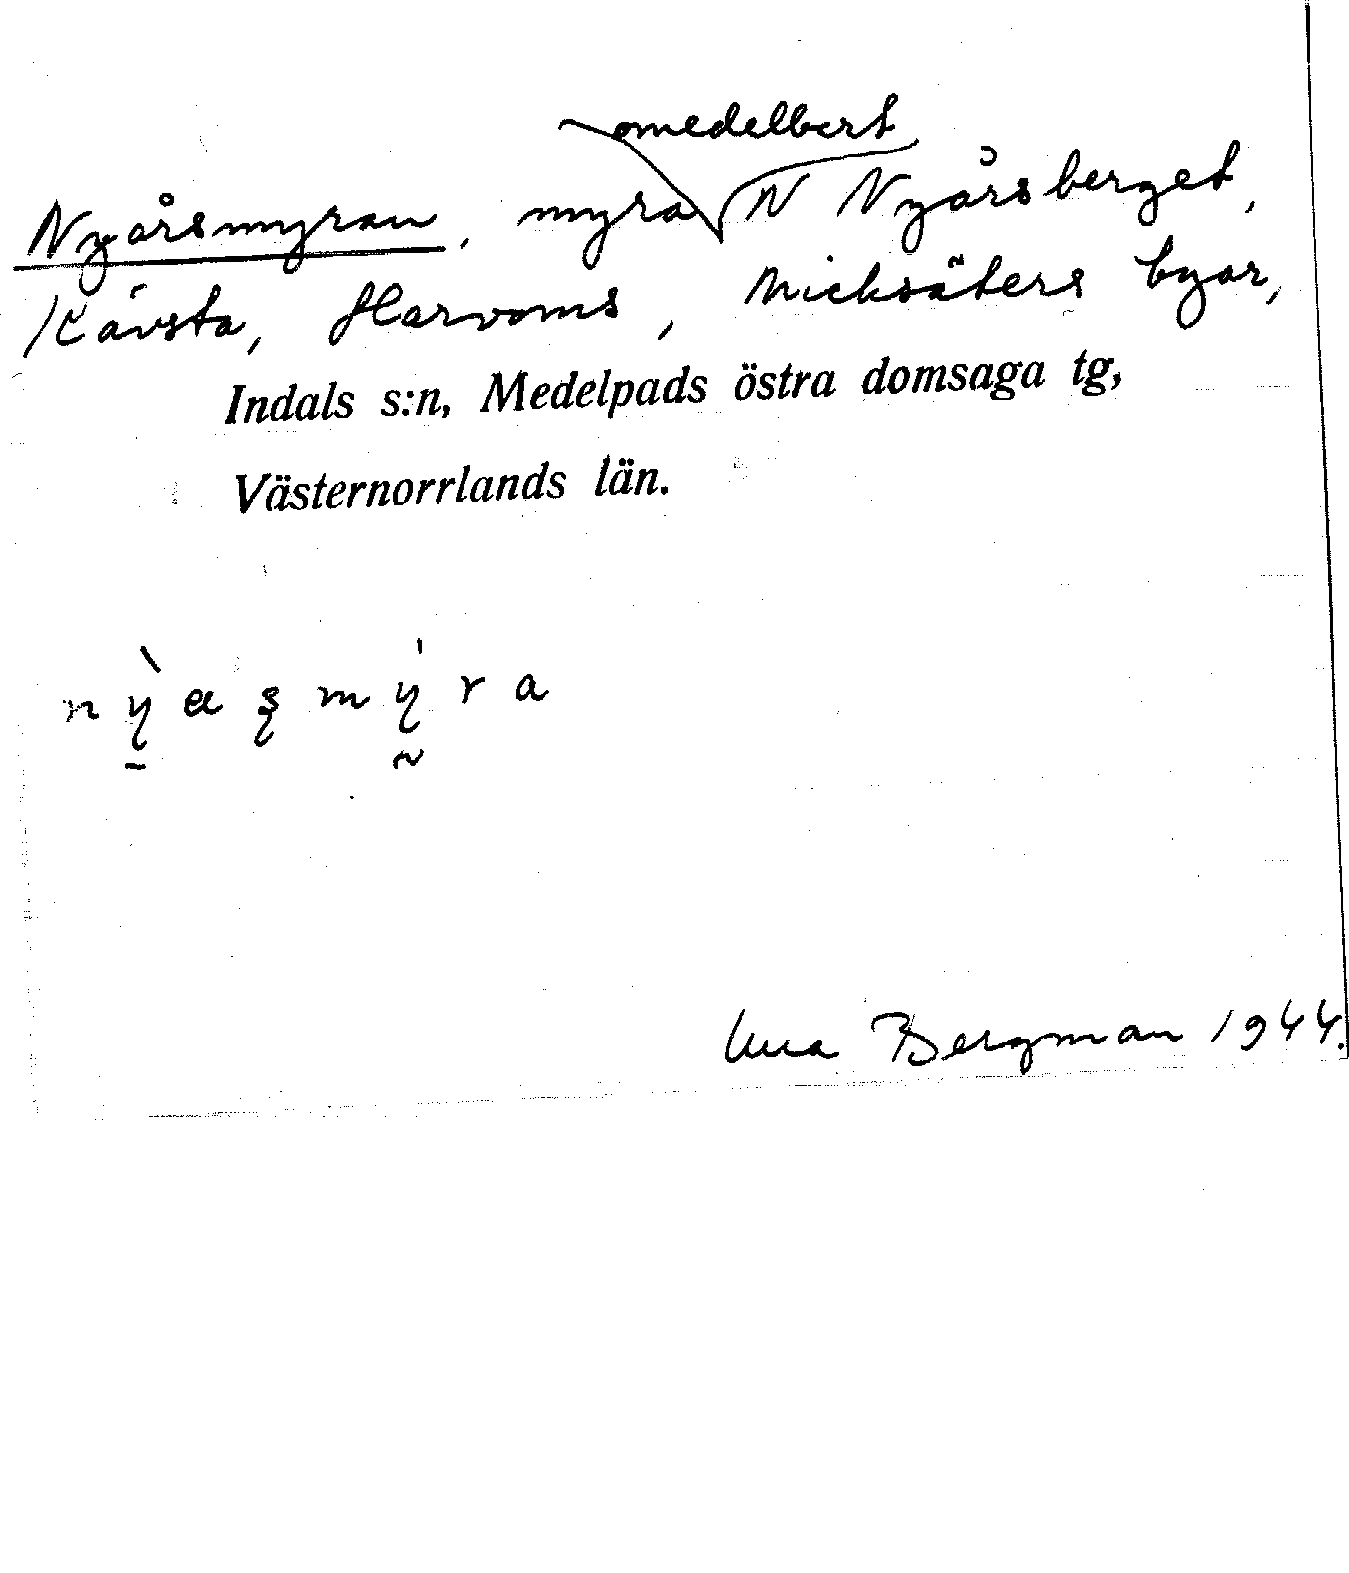 omedelbart
Nyårsmyran, myra N Nyårsberget,
Kävsta, Harvoms, Nicksäters byar,
Indals s:n, Medelpads östra domsaga tg,
Västernorrlands län.
Bergman 1944.